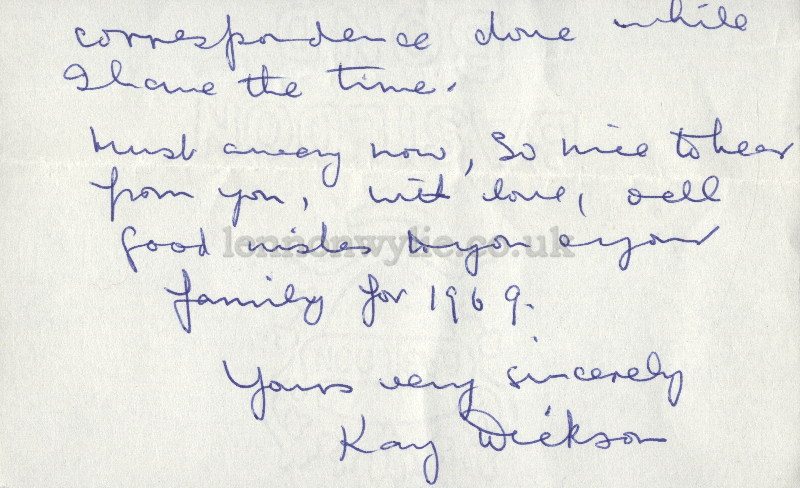 correspondence done while
I have the time.
Must away now, So nice to hear
from you, with love, & all
good wishes to you & your
family for 1969.
Yours very sincerely
Kay Dickson
lennonwylie.co.uk